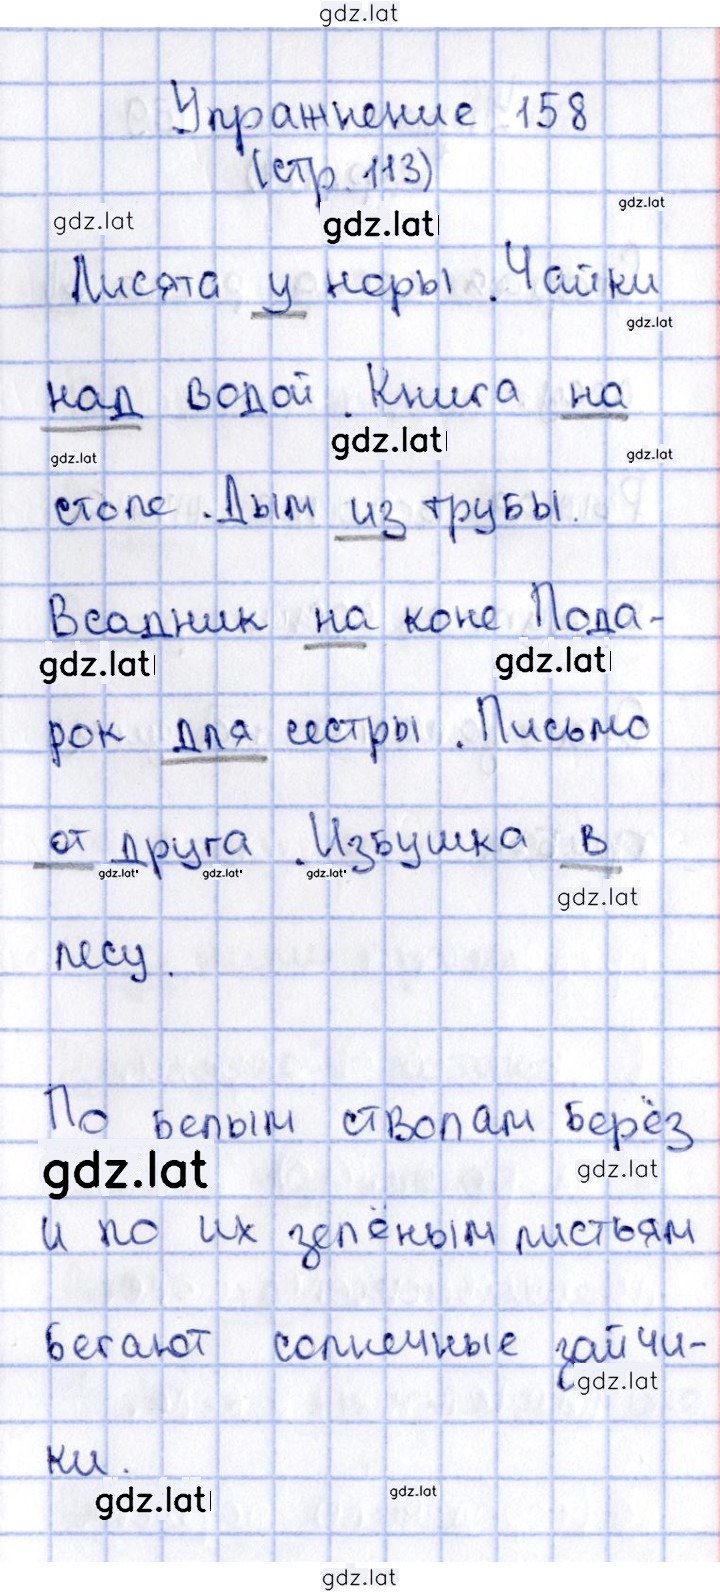 gdz.lat
Упражнение 158
(стр. 113)
gdz.lat gdz.lat gdz.lat
Лисята у норы. Чайки
gdz.lat
над водой. Книга на
gdz.lat gdz.lat gdz.lat
столе. Дым из трубы.
Всадник на коне Пода-
gdz.lat gdz.lat
рок для сестры. Письмо
от друга. Избушка в
gdz.lat gdz.lat gdz.lat gdz.lat
лесу.
По белым стволам берёз
gdz.lat gdz.lat
и по их зелёным листьям
бегают солнечные зайчи-
gdz.lat
ки.
gdz.lat gdz.lat
gdz.lat